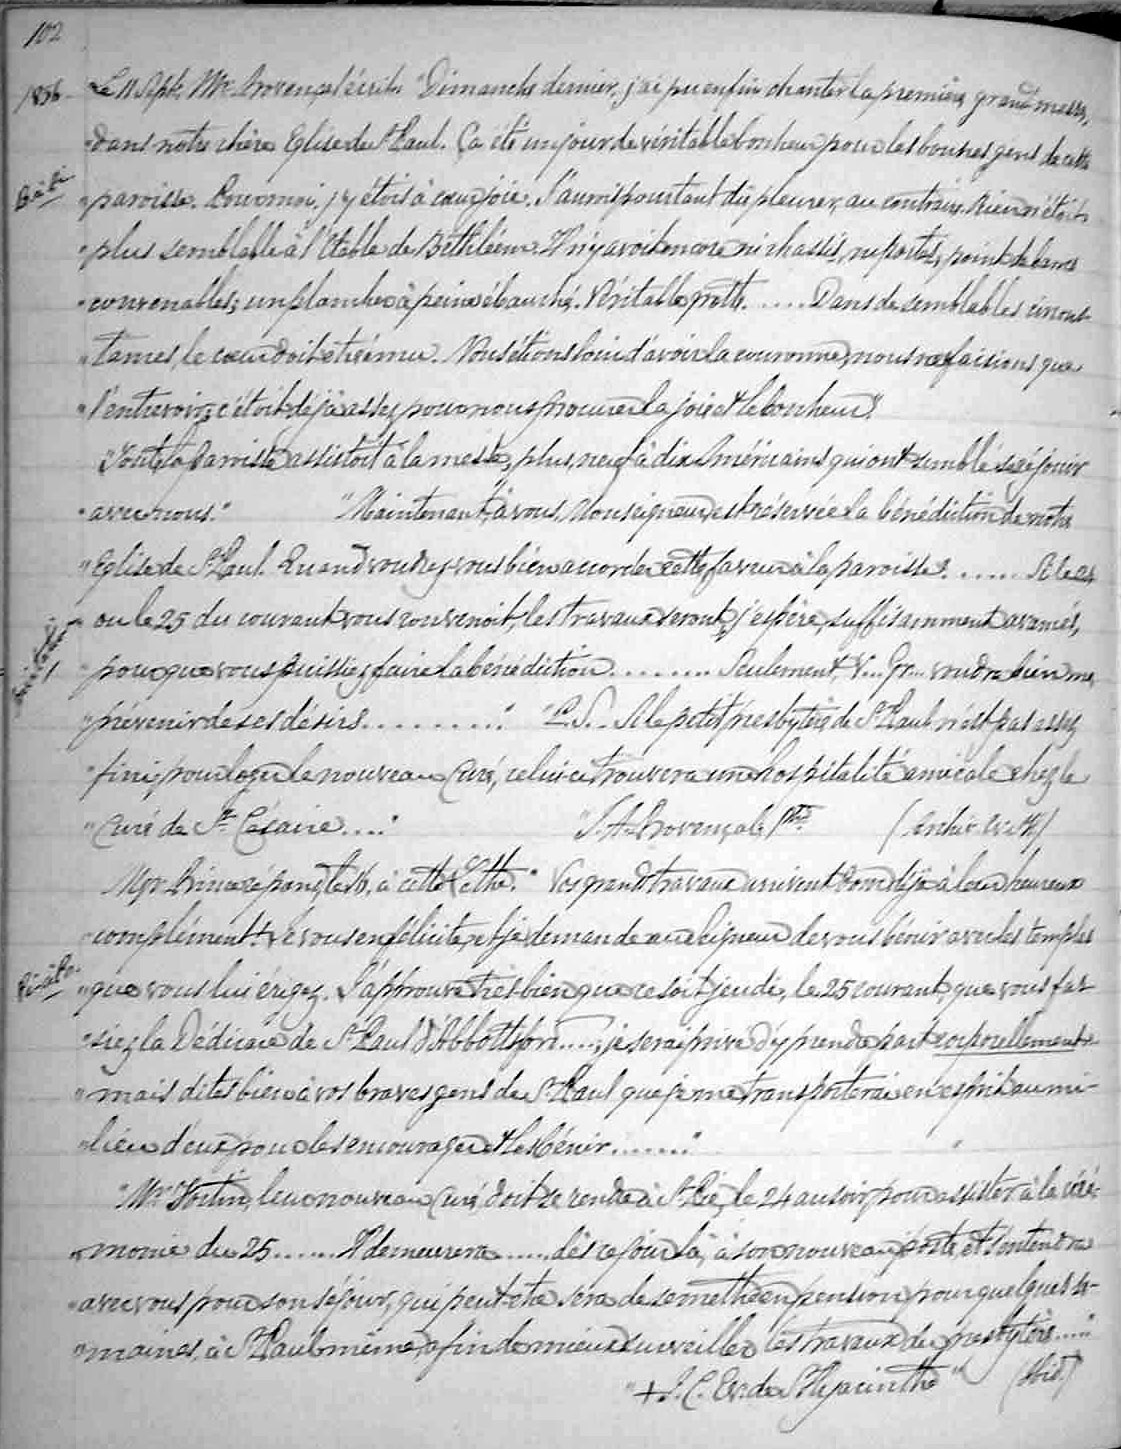 102
1856 - Le 11 Sept. Mr. Provençal écrit: "Dimanche dernier, j'ai pu enfin chanter la première grand'messe,
"dans notre chère Eglise de St Paul. Ça été un jour de véritable bonheur pour les bonnes gens de cette
"paroisse. Pour moi, j'y étois à coeur joie. J'aurois pourtant dû pleurer, au contraire. Rien n'étoit
"plus semblable à l'Etable de Bethléem. Il n'y avoit encore ni chassis, ni portes, point de bancs
"convenables; un plancher à peine ébauché. Véritable grotte. ..... Dans de semblables circons-
"tances, le coeur doit être ému. Nous étions loin d'avoir la couronne, nous ne faisions que
"l'entrevoir; c'étoit déjà assez pour nous procurer la joie et le bonheur."
"Toute la Paroisse assistoit à la messe, plus, neuf à dix Américains qui ont semblé se réjouir
"avec nous." "Maintenant, à vous, Monseigneur, est réservée la bénédiction de notre
"Eglise de St Paul. Quand voudrez-vous bien accorder cette faveur à la paroisse? ...... Si le 24
"ou le 25 du courant vous convenoit, les travaux seront, j'espère, suffisamment avancés,
"pour que vous puissiez faire la bénédiction ........ Seulement, V... Gr... voudra bien me
"prévenir de ses désirs ........." "P.S. Si le petit presbytère de St Paul n'est pas assez
"fini, pour loger le nouveau Curé, celui-ci trouvera une hospitalité amicale chez le
"Curé de St. Césaire ...." "J. A. Provençal, Ptre (Archiv. Ev. St H)
Mgr. Prince répond, le 16, à cette lettre: "Vos grands travaux arrivent donc déjà à leur heureux
"complément! Je vous en félicite, et je demande au Seigneur de vous bénir avec les temples
"que vous lui érigez. J'approuve très bien que ce soit jeudi, le 25 courant, que vous fas-
"siez la Dédicace de St Paul d'Abbottsford ....; je serai privé d'y prendre part corporellement:
"mais dites bien à vos braves gens de St. Paul que je me transporterai en esprit au mi-
"lieu d'eux pour les encourager et les bénir ......."
"Mr. Fortin, leur nouveau Curé, doit se rendre à St. Pie, le 24 au soir, pour assister à la céré-
"monie du 25 ...... Il demeurera ..... dès ce jour là, à son nouveau poste, et s'entendra
"avec vous pour son séjour, qui peut-être sera de se mettre en pension pour quelques se-
"maines, à St Paul même, afin de mieux surveiller les travaux du presbytère ....."
"+ J. C. Ev. de St Hyacinthe" (Ibid.)